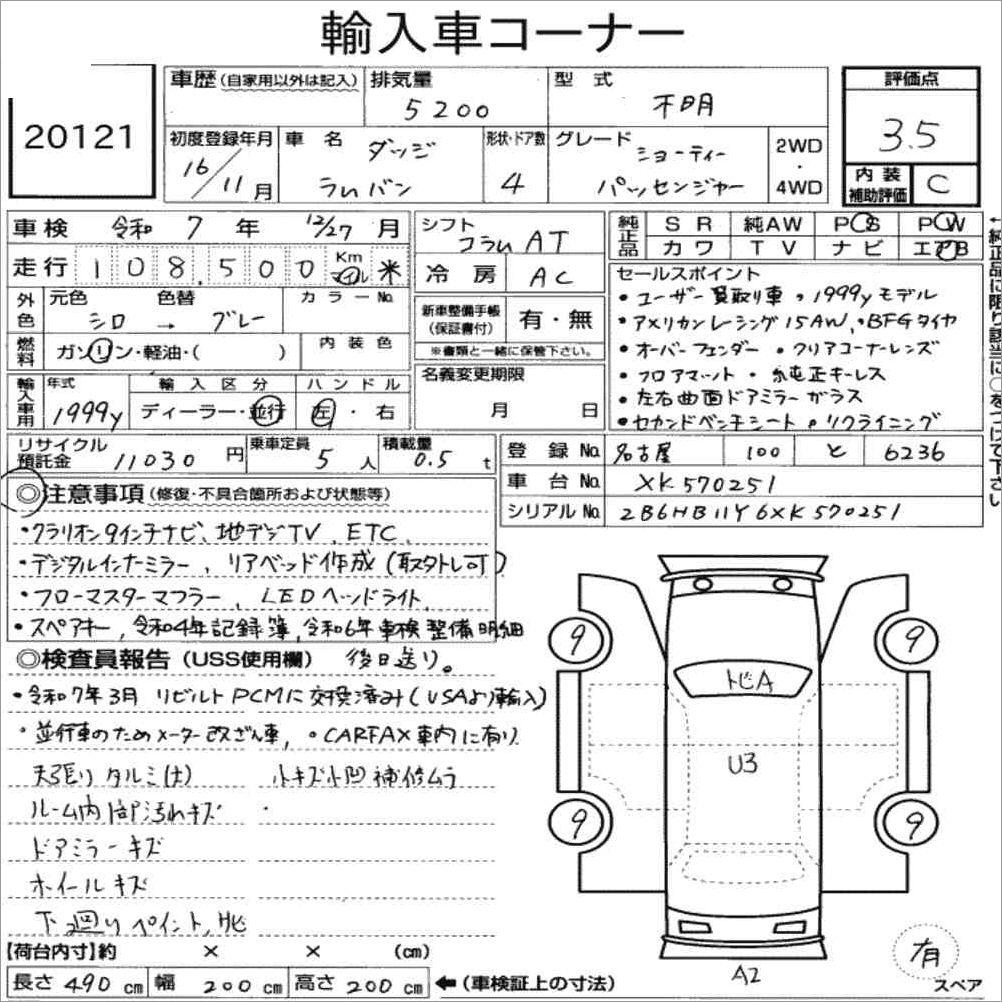 輸入車コーナー
20121
車歴(自家用以外は記入)
排気量
5200
型式
不明
評価点
3.5
初度登録年月
16/11月
車名
ダッジ
ラムバン
形状・ドア数
4
グレード
ショーティー
パッセンジャー
2WD
・
4WD
内装
補助評価
C
車検 令和 7年 12/27月
走行 108,500 Km マイル 米
シフト
コラム AT
冷房 AC
純正品
SR 純AW PS PW
カワ TV ナビ エアB
外色
元色 色替 カラーNo.
シロ → グレー
燃料
ガソリン・軽油・( )
内装色
新車整備手帳
(保証書付)
有・無
※書類と一緒に保管下さい。
名義変更期限
月 日
セールスポイント
・ユーザー買取り車 ・1999yモデル
・アメリカンレーシング15AW, ・BFGタイヤ
・オーバーフェンダー ・クリアコーナーレンズ
・フロアマット ・純正キーレス
・左右曲面ドアミラーガラス
・セカンドベンチシート ・リクライニング
輸入車用
年式
1999y
輸入区分
ディーラー・並行
ハンドル
左・右
リサイクル
預託金
11030円
乗車定員
5人
積載量
0.5t
登録No. 名古屋 100 と 6236
車台No. XK570251
シリアルNo. 2B6HB11Y6XK570251
◎注意事項(修復・不具合箇所および状態等)
・クラリオン9インチナビ、地デジTV、ETC
・デジタルインナーミラー、リアベッド作成(取外し可)
・フローマスターマフラー、LEDヘッドライト,
・スペアキー,令和4年記録簿,令和6年車検整備明細
◎検査員報告(USS使用欄) 後日送り。
・令和7年3月 リビルトPCMに交換済み(USAより輸入)
・並行車のためメーター改ざん車, ・CARFAX車内に有り
天張りタルミ(大) 小キズ小凹補修ムラ
ルーム内部汚れキズ
ドアミラーキズ
ホイールキズ
下廻りペイント,サビ
9
9
9
9
トビA
U3
A2
有
スペア
【荷台内寸】約 × × (cm)
長さ490cm 幅200cm 高さ200cm ←(車検証上の寸法)